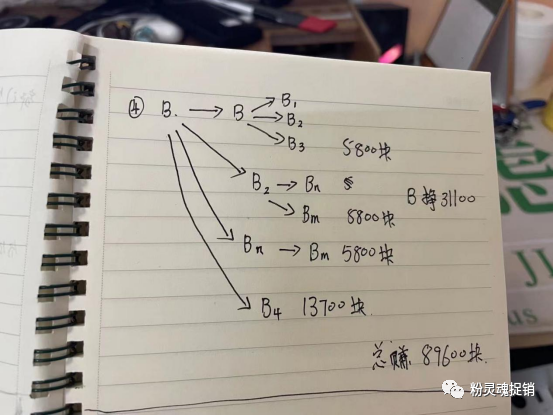 ④ B. → B → B₁
→ B₂
→ B₃ 5800块
B₂ → Bn
→ Bm 8800块
B 挣31100
Bn → Bm 5800块
B₄ 13700块.
总赚 89600块.
粉灵魂捉销